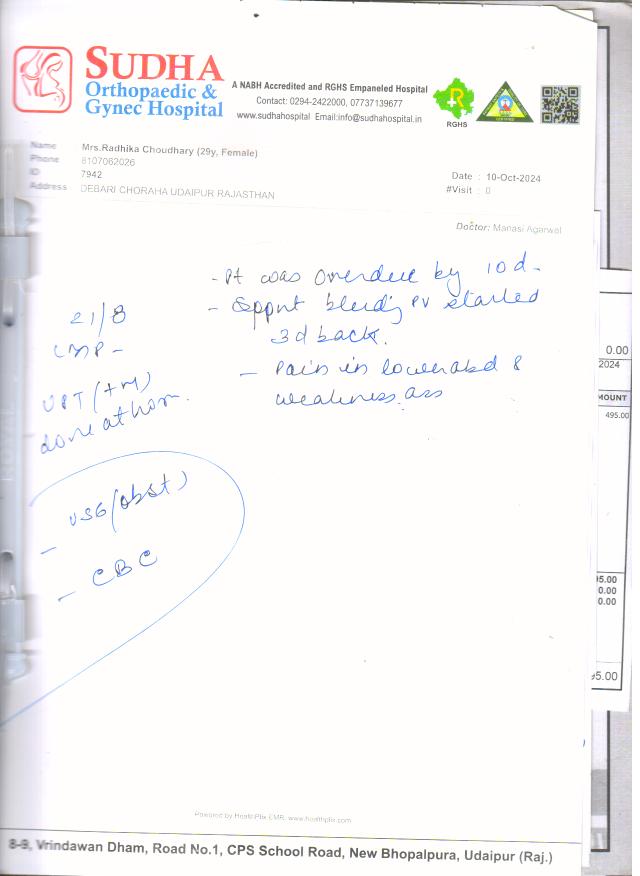 SUDHA
Orthopaedic &
Gynec Hospital
A NABH Accredited and RGHS Empaneled Hospital
Contact: 0294-2422000, 07737139677
www.sudhahospital Email:info@sudhahospital.in
RGHS
Name Mrs.Radhika Choudhary (29y, Female)
Phone 8107062026
ID 7942
Address DEBARI CHORAHA UDAIPUR RAJASTHAN
Date : 10-Oct-2024
#Visit : 0
Doctor: Manasi Agarwal
- Pt was overdue by 10 d-
- bleeding PV started
3d back.
- Pain in lower abd &
weakness. ass
21/8
LMP -
UPT (+ve)
done at hom.
- USG (obst)
- CBC
0.00
2024
MOUNT
495.00
95.00
0.00
0.00
95.00
Powered by HealthPlix EMR. www.healthplix.com
8-9, Vrindawan Dham, Road No.1, CPS School Road, New Bhopalpura, Udaipur (Raj.)